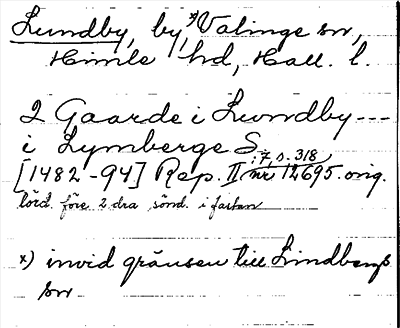 Lundby, by, x) Valinge sn,
Himle hd, Hall. l.
2 Gaarde i Lwndby ---
i Lymberge S.
: 7, s. 318
[1482-94] Rep. II nr 12695. orig.
lörd. före 2 dra sönd. i fastan
x) invid gränsen till Lindbergs
sn